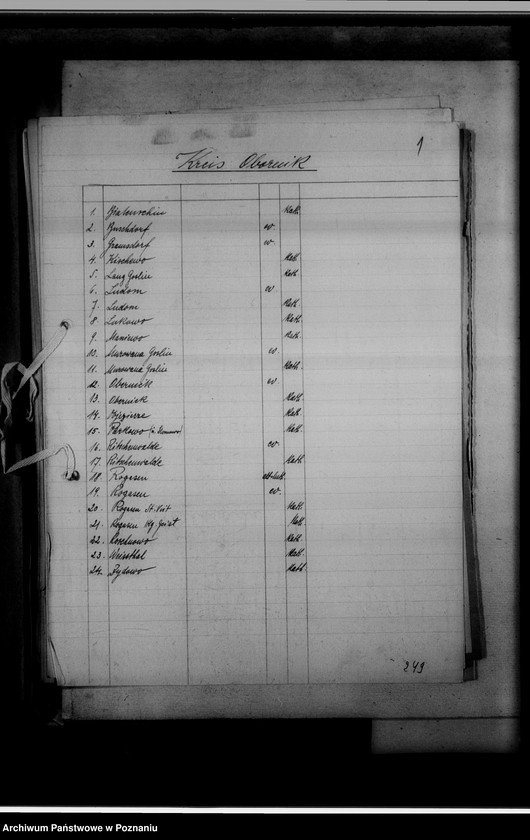 1
Kreis Obornik
1. Bialenschin Kath.
2. Buschdorf ev.
3. Gramsdorf ev.
4. Kischewo Kath.
5. Lang Goslin Kath.
6. Ludom ev.
7. Ludom Kath.
8. Lukowo Kath.
9. Maniewo Kath.
10. Murowana Goslin ev.
11. Murowana Goslin Kath.
12. Obornik ev.
13. Obornik Kath.
14. Kath.
15. Parkowo Kath.
16. Ritschenwalde ev.
17. Ritschenwalde Kath.
18. Rogasen alt-luth.
19. Rogasen ev.
20. Rogasen St. Veit Kath.
21. Rogasen Hlg. Geist Kath.
22. Roschnowo Kath.
23. Kath.
24. Rydowo Kath.
249
Archiwum Państwowe w Poznaniu